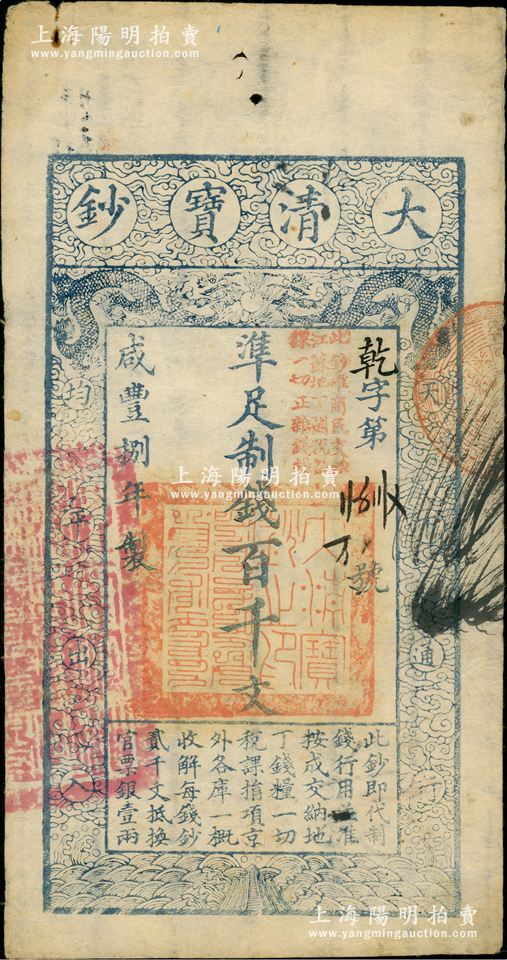 上海陽明拍賣
www.yangmingauction.com
大清寶鈔
乾字第
號
準足制錢百千文
咸豐捌年製
天
通行
均平出入
此鈔即代制
錢行用並准
按成交納地
丁錢糧一切
稅課捐項京
外各庫一概
收解每錢鈔
貳千文抵換
官票銀壹兩
上海陽明拍賣
www.yangmingauction.com
上海陽明拍賣
www.yangmingauction.com